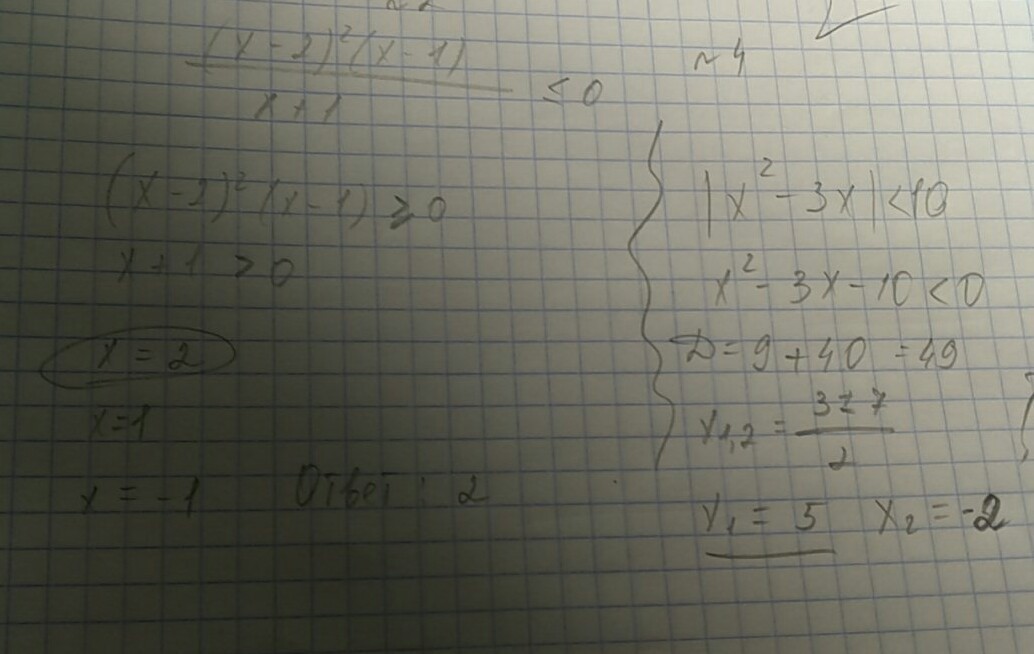 (x-2)²(x-1)
x+1
≤ 0
(x-2)²(x-1) ≥ 0
x+1 > 0
x = 2
x=1
x = -1
Ответ: 2
~4
|x²-3x|<10
x²-3x-10<0
D=9+40=49
x₁,₂ = 3±7
2
x₁ = 5 x₂ = -2